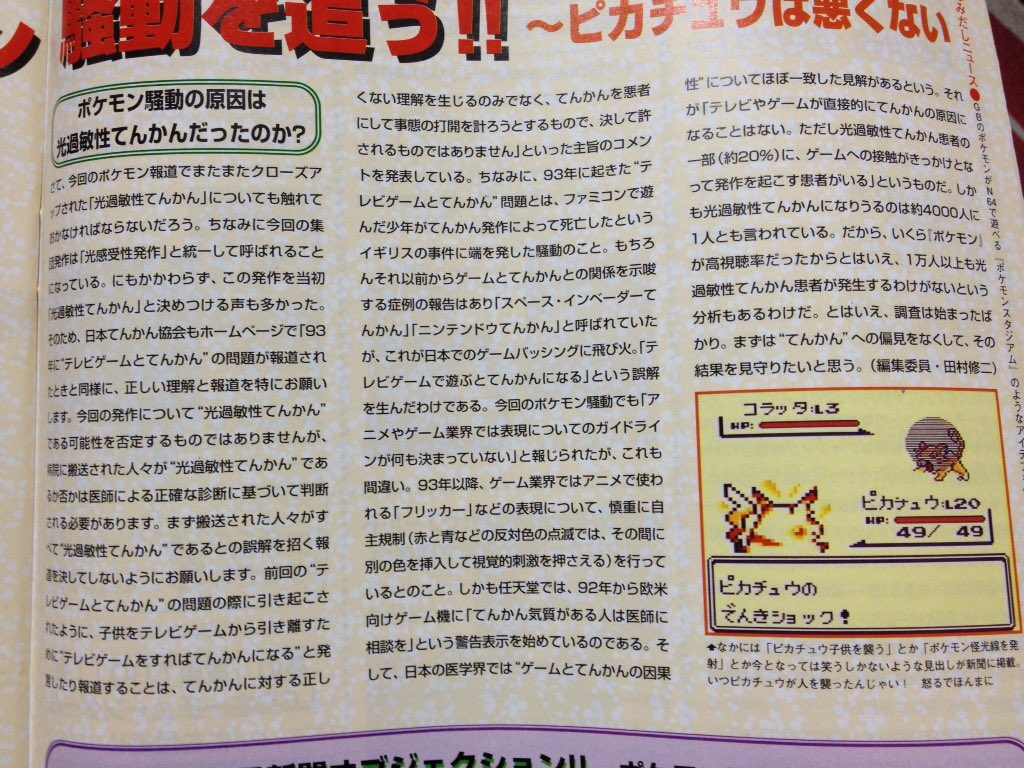 騒動を追う!!
〜ピカチュウは悪くない
みだしニュース●GBのポケモンがN64で遊べる『ポケモンスタジアム』のようなアイテ
ポケモン騒動の原因は
光過敏性てんかんだったのか?
さて、今回のポケモン報道でまたまたクローズア
ップされた「光過敏性てんかん」についても触れて
おかなければならないだろう。ちなみに今回の集
団発作は「光感受性発作」と統一して呼ばれること
になっている。にもかかわらず、この発作を当初
「光過敏性てんかん」と決めつける声も多かった。
そのため、日本てんかん協会もホームページで「93
年に“テレビゲームとてんかん”の問題が報道され
たときと同様に、正しい理解と報道を特にお願い
します。今回の発作について“光過敏性てんかん”
である可能性を否定するものではありませんが、
病院に搬送された人々が“光過敏性てんかん”であ
るか否かは医師による正確な診断に基づいて判断
される必要があります。まず搬送された人々がす
べて“光過敏性てんかん”であるとの誤解を招く報
道を決してしないようにお願いします。前回の“テ
レビゲームとてんかん”の問題の際に引き起こさ
れたように、子供をテレビゲームから引き離すた
めに“テレビゲームをすればてんかんになる”と発
言したり報道することは、てんかんに対する正し
くない理解を生じるのみでなく、てんかんを悪者
にして事態の打開を計ろうとするもので、決して許
されるものではありません」といった主旨のコメン
トを発表している。ちなみに、93年に起きた“テ
レビゲームとてんかん”問題とは、ファミコンで遊
んだ少年がてんかん発作によって死亡したという
イギリスの事件に端を発した騒動のこと。もちろ
んそれ以前からゲームとてんかんとの関係を示唆
する症例の報告はあり「スペース・インベーダーて
んかん」「ニンテンドウてんかん」と呼ばれていた
が、これが日本でのゲームバッシングに飛び火。「テ
レビゲームで遊ぶとてんかんになる」という誤解
を生んだわけである。今回のポケモン騒動でも「ア
ニメやゲーム業界では表現についてのガイドライ
ンが何も決まっていない」と報じられたが、これも
間違い。93年以降、ゲーム業界ではアニメで使わ
れる「フリッカー」などの表現について、慎重に自
主規制(赤と青などの反対色の点滅では、その間に
別の色を挿入して視覚的刺激を押さえる)を行って
いるとのこと。しかも任天堂では、92年から欧米
向けゲーム機に「てんかん気質がある人は医師に
相談を」という警告表示を始めているのである。そ
して、日本の医学界では“ゲームとてんかんの因果
性”についてほぼ一致した見解があるという。それ
が「テレビやゲームが直接的にてんかんの原因に
なることはない。ただし光過敏性てんかん患者の
一部(約20%)に、ゲームへの接触がきっかけとな
って発作を起こす患者がいる」というものだ。しか
も光過敏性てんかんになりうるのは約4000人に
1人とも言われている。だから、いくら『ポケモン』
が高視聴率だったからとはいえ、1万人以上も光
過敏性てんかん患者が発生するわけがないという
分析もあるわけだ。とはいえ、調査は始まったば
かり。まずは“てんかん”への偏見をなくして、その
結果を見守りたいと思う。(編集委員・田村修二)
コラッタ:L3
HP:
ピカチュウ:L20
HP:
49/ 49
ピカチュウの
でんきショック!
⬆なかには「ピカチュウ子供を襲う」とか「ポケモン怪光線を発
射」とか今となっては笑うしかないような見出しが新聞に掲載。
いつピカチュウが人を襲ったんじゃい! 怒るでほんまに
オブジェクション!!